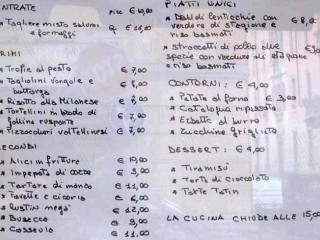 NTRATE
* Tagliere misto salumi e formaggi € 15,00
RIMI
* Trofie al pesto € 7,00
* Tagliolini vongole e bottarga € 8,00
* Risotto alla Milanese € 7,00
* Tortellini in brodo di gallina ruspante € 7,00
* Pizzoccheri valtellinesi € 7,00
ECONDI
* Alici in fritture € 10,00
* Impepata di cozze € 9,00
* Tartare di manzo € 11,00
* Favette e cicoria € 6,00
* Rustin negàa € 12,00
* Busecca € 9,00
* Cassoeula € 11,00
PIATTI UNICI
* Dahl di lenticchie con verdure di stagione e riso basmati € 8,00
* Straccetti di pollo alle spezie con verdure di stagione e riso basmati
CONTORNI : € 4,00
* Patate al forno € 3,00
* Catalogna ripassata
* Erbette al burro
* Zucchine grigliate
DESSERT : € 4,00
* Tiramisù
* Torta di cioccolato
* Tarte Tatin
LA CUCINA CHIUDE ALLE 15,00